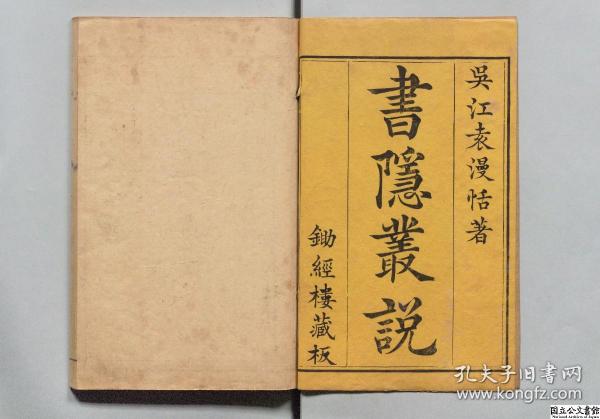 吳江袁漫恬著
書隱叢說
鋤經樓藏板
孔夫子旧书网
www.kongfz.com
国立公文書館
National Archives of Japan